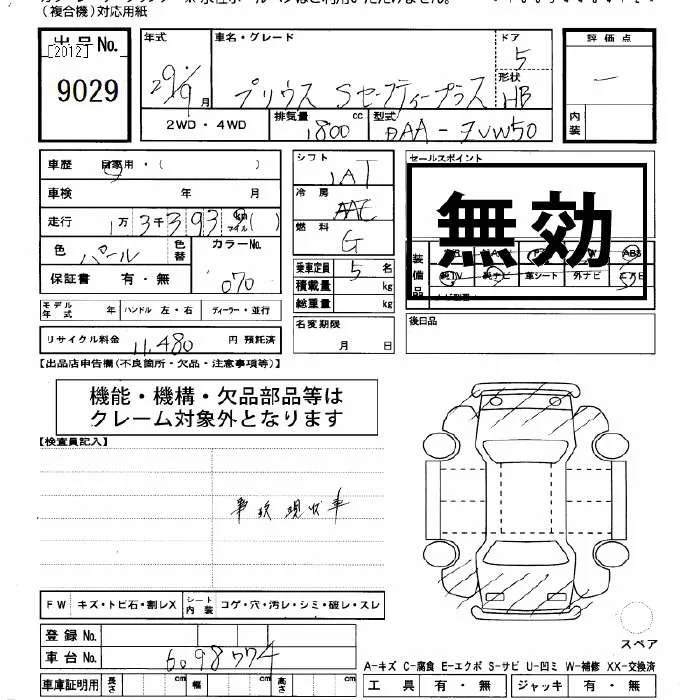 (複合機)対応用紙
出品No.
[2012]
9029
年式
29年9月
車名・グレード
プリウス Sセーフティープラス
ドア
5
形状
HB
評価点
内装
2WD・4WD
排気量
1800 cc
型式
DAA-ZVW50
車歴 自家用・( )
車検 年 月
走行 1万3千393 km マイル ( )
色 パール
色替
カラーNo.
070
保証書 有・無
モデル年式 年 ハンドル 左・右 ディーラー・並行
リサイクル料金 11,480 円 預託済
シフト
IAT
冷房
AAC
燃料
G
乗車定員 5 名
積載量 kg
総重量 kg
名変期限
月 日
セールスポイント
無効
装備品
ABS
革シート 外ナビ エアB
後日品
【出品店申告欄(不良箇所・欠品・注意事項等)】
機能・機構・欠品部品等は
クレーム対象外となります
【検査員記入】
事故現状車
FW キズ・トビ石・割レX シート内装 コゲ・穴・汚レ・シミ・破レ・スレ
登録No.
車台No. 6098774
車庫証明用 長さ cm 幅 cm 高さ cm
スペア
A-キズ C-腐食 E-エクボ S-サビ U-凹ミ W-補修 XX-交換済
工具 有・無 ジャッキ 有・無